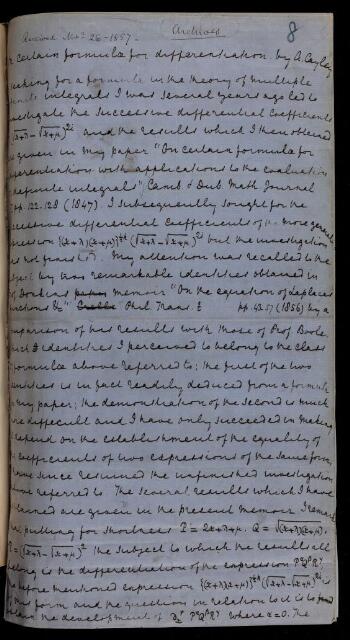 Received Nov. 26 - 1857. Archives 8
certain formulæ for differentiation. by A. Cayley
seeking for a formula in the theory of multiple
integrals I was several years ago led to
investigate the successive differential coefficients
(√x+λ - √x+μ)^2i and the results which I then obtained
are given in my paper "On certain formulæ for
differentiation with applications to the evaluation
definite integrals" Camb & Dub Math Journal
pp. 122-128 (1847). I subsequently sought for the
successive differential coefficients of the more general
expression (√x+λ - √x+μ)^2i but the investigation
was not My attention was recalled to the
subject by two remarkable identities obtained in
memoir "On the equation of Laplace's
functions &c" Phil. Trans. pp 43-57 (1856) by a
comparison of his results with those of Prof Boole.
which identities I perceived to belong to the class
formulæ above referred to; the first of the two
identities is in fact readily deduced from a formula
my paper; the demonstration of the second is much
more difficult and I have only succeeded in making
it depend on the establishment of the equality of
the coefficients of two expressions of the same form.
I have since resumed the unfinished investigation
above referred to. The several results which I have
obtained are given in the present memoir. I remark
that putting for shortness P = 2x+λ+μ. Q = √(x+λ)(x+μ).
R = (√x+λ - √x+μ)^2 the subject to which the results all
belong is the differentiation of the expression
the before mentioned expression
this form and the question in relation to it is to
the development of where x=0. The